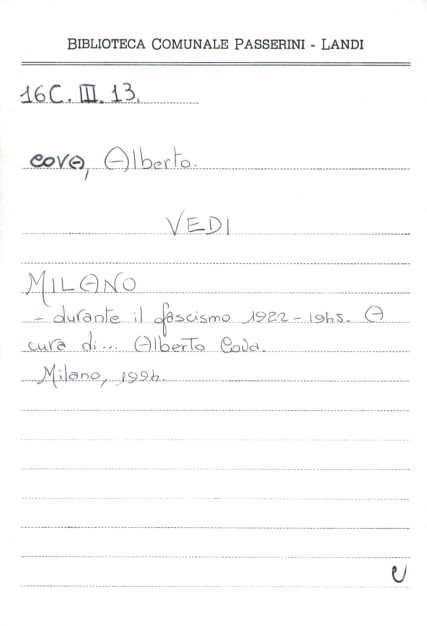 BIBLIOTECA COMUNALE PASSERINI - LANDI
16C. III. 13.
COVA, Alberto.
VEDI
MILANO
- durante il fascismo 1922-1945. A
cura di... Alberto Cova.
Milano, 1994.